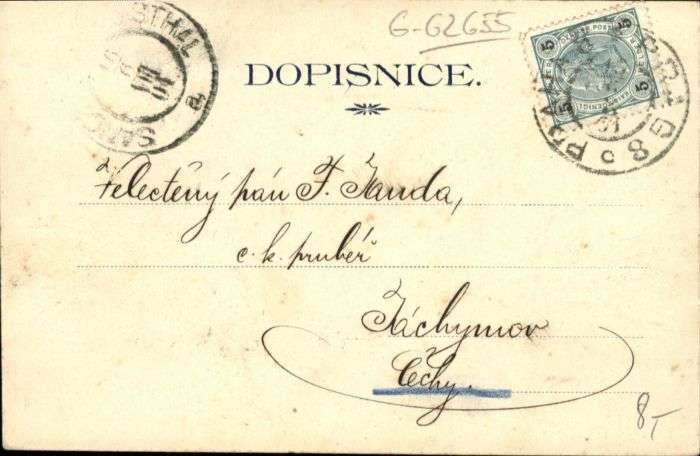 G-62655
DOPISNICE.
Velectěný pán F. Janda,
c. k. prubéř
Jáchymov
Čechy.
8,-
5 5
5 5